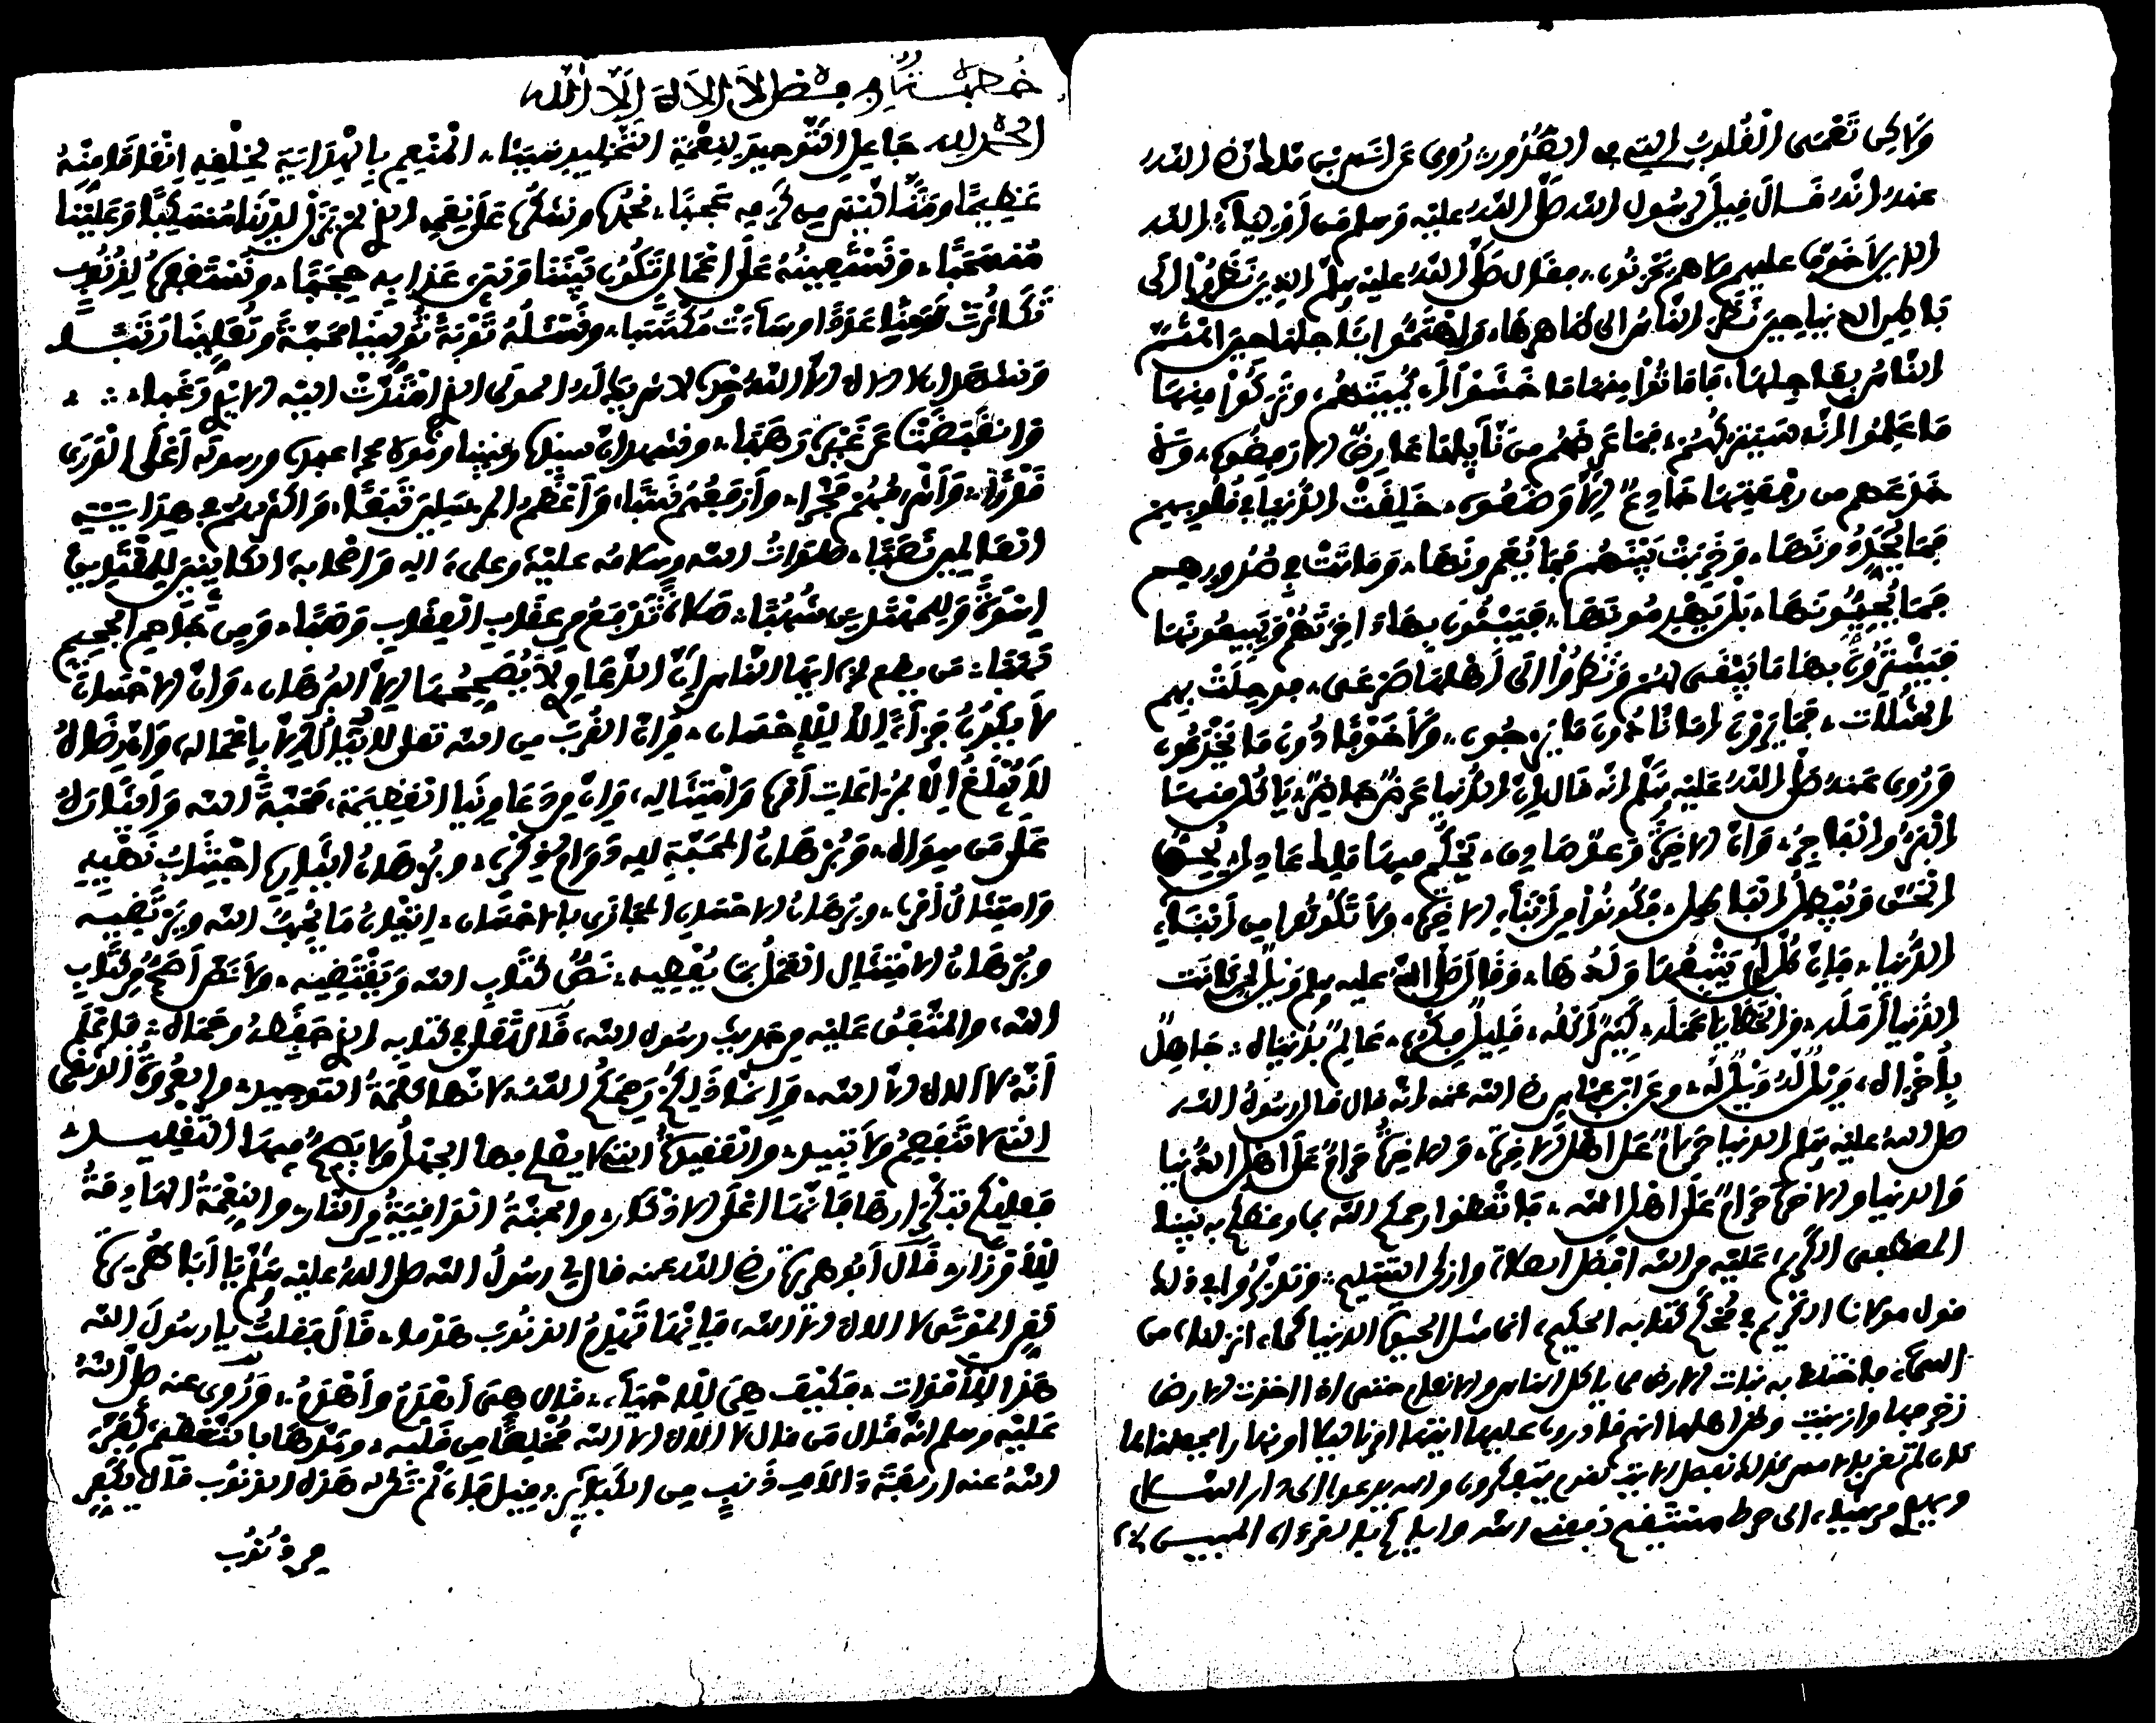 ولكن تعمى القلوب التي في الصدور، روي عن أنس بن مالك رضي الله
عنه أنه قال قيل لرسول الله صلى الله عليه وسلم من أولياء الله
الذين لا خوف عليهم ولا هم يحزنون، فقال صلى الله عليه وسلم الذين نظروا إلى
باطن الدنيا حين نظر الناس إلى ظاهرها، واهتموا بآجلها حين اهتم
الناس بعاجلها، فأماتوا منها ما خشوا أن يميتهم، وتركوا منها
ما علموا أنه سيتركهم، فما عرضهم من نائلها عارض إلا رفضوه، ولا
خادعهم من رفعتها خادع إلا وضعوه، خلقت الدنيا في قلوبهم
فما يجددونها، وخربت بينهم فما يعمرونها، وماتت في صدورهم
فما يحيونها، بل يهدمونها، فيبنون بها آخرتهم ويبيعونها
فيشترون بها ما يبقى لهم ونظروا إلى أهلها صرعى، قد حلت بهم
المثلات، فما يرون أمانا دون ما يرجون، ولا خوفا دون ما يحذرون
وروي عنه صلى الله عليه وسلم أنه قال إن الدنيا عرض حاضر، يأكل منها
البر والفاجر، وإن الآخرة وعد صادق، يحكم فيها ملك عادل يحق
الحق ويبطل الباطل، فكونوا من أبناء الآخرة، ولا تكونوا من أبناء
الدنيا، فإن كل أم يتبعها ولدها، وقال صلى الله عليه وسلم ويل لمن كانت
الدنيا أمله، والخطايا عمله، كثير أكله، قليل فكره، عالم بدنياه، جاهل
بأخراه، ويل له ويل له، وعن ابن عباس رضي الله عنه أنه قال قال رسول الله
صلى الله عليه وسلم الدنيا حرام على أهل الآخرة، والآخرة حرام على أهل الدنيا
والدنيا والآخرة حرام على أهل الله، فاتعظوا رحمكم الله بما وعظكم به نبينا
المصطفى الكريم، عليه من الله أفضل الصلاة وأزكى التسليم، وتدبروا في ذلك
قول مولانا الكريم في محكم كتابه الحكيم، إنما مثل الحيوة الدنيا كماء أنزلناه من
السماء فاختلط به نبات الأرض مما يأكل الناس والأنعام حتى إذا أخذت الأرض
زخرفها وازينت وظن أهلها أنهم قادرون عليها أتيها أمرنا ليلا أو نهارا فجعلناها
كأن لم تغن بالأمس كذلك نفصل الآيات لقوم يتفكرون والله يدعوا إلى دار السلام
ويهدي من يشاء إلى صرط مستقيم نفعنا الله وإياكم بالقرءان المبين
خطبة في فضل لا إله إلا الله
الحمد لله جاعل التوحيد لنعمة التخليد سببا، المنعم بالهداية لخلقه إنعاما منه
عظيما ومنا
ونشهد أن لا إله إلا الله وحده لا شريك له المولى الذي امتدت إليه الأيدي رغبا،
وانقبضت عن غيره رهبا، ونشهد أن سيدنا ونبينا ومولانا محمدا عبده ورسوله أعلى الورى
قدرا، وأشرفهم فخرا، وأرفعهم نسبا، وأعظم المرسلين تبعا،
صلوات الله وسلامه عليه وعلى آله وأصحابه الكائنين للمقتدين
إسوة وللمهتدين شهبا،
أيها الناس إن الدعاوي لا يصححها إلا البرهان، وإن الإحسان
لا يكون جزاء إلا للإحسان، وإن القرب من الله تعلى لا ينال إلا بأعماله، وإن رضاه
لا يبلغ إلا بمراعات أمره وامتثاله، وإن من دعاوينا العظيمة، محبة الله وإيثاره
على من سواه، وبرهان المحبة لله دوام ذكره، وبرهان إيثاره اجتناب نهيه
وامتثال أمره، وبرهان الإحسان المجازى بالإحسان، إتيان ما يحبه الله ويرتضيه
وبرهان الامتثال العمل بما يعطيه، نص كتاب الله ويقتضيه، ولا نص أصح من كتاب
الله، والمتفق عليه من حديث رسول الله، قال تعلى في كتابه الذي حفظه وحماه، فاعلم
أنه لا إله إلا الله، وإنما ذلكم رحمكم الله، لأنها كلمة التوحيد، والعروة الوثقى
التي لا تنفصم ولا تبيد، والعقيدة التي لا يصلح بها الجهل ولا يصح فيها التقليد،
فعليكم بتكرارها فإنها أعلى الأذكار، والجنة الواقية من النار، والنعمة الهادمة
للأوزار، قال أبو هريرة رضي الله عنه قال لي رسول الله صلى الله عليه وسلم يا أبا هريرة
لقن الموتى لا إله إلا الله، فإنها تهدم الذنوب هدما، قال فقلت يا رسول الله
هذا للأموات، فكيف هي للأحياء، قال هي أهدم وأهدم، وروي عنه صلى الله
عليه وسلم أنه قال من قال لا إله إلا الله مخلصا من قلبه، ومدها بالتعظيم، كفر
الله عنه أربعة ءالاف ذنب من الكبائر، قيل فإن لم تكن له هذه الذنوب قال يكفر
من ذنوب